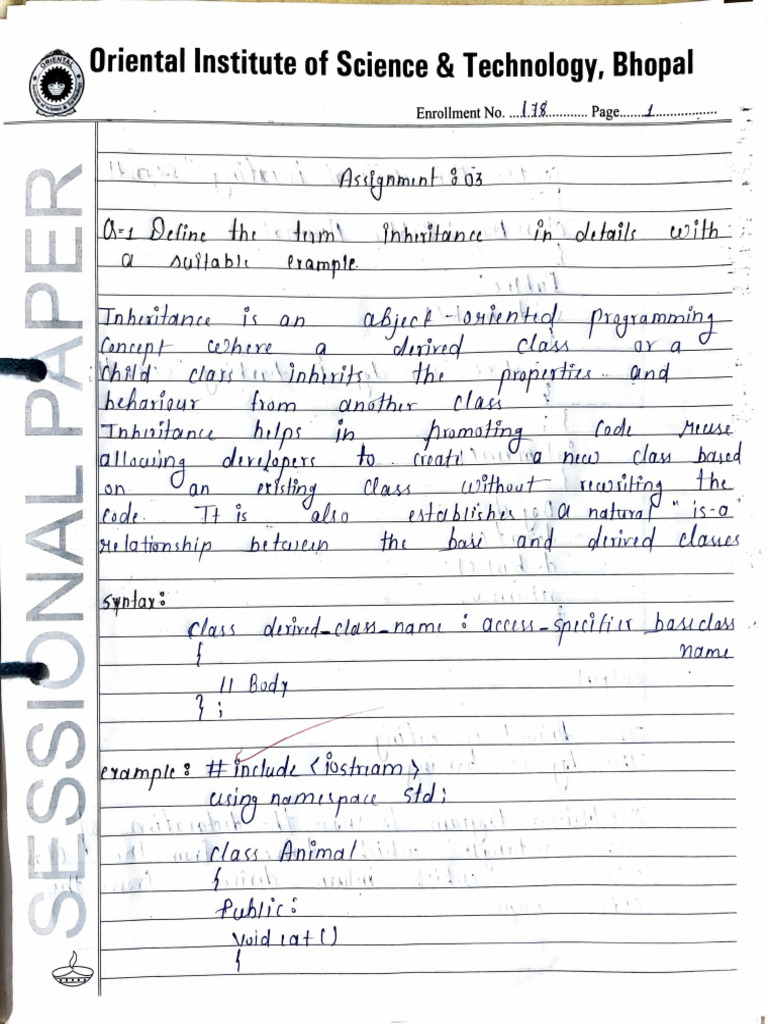 Oriental Institute of Science & Technology, Bhopal
Enrollment No. ....178............ Page.......1..................
SESSIONAL PAPER
Assignment : 03
Q=1 Define the term inheritance in details with
a suitable example.
Inheritance is an abject-oriented programming
concept where a derived class or a
child class inherits the properties and
behaviour from another class.
Inheritance helps in promoting code reuse
allowing developers to create a new class based
on an existing class without rewriting the
code. It is also establishes a natural "is-a"
relationship between the base and derived classes
syntax:
class derived_class_name : access_specifier baseclass
{ name
// Body
};
example: #include <iostream>
using namespace std;
class Animal
{
Public:
void eat()
{